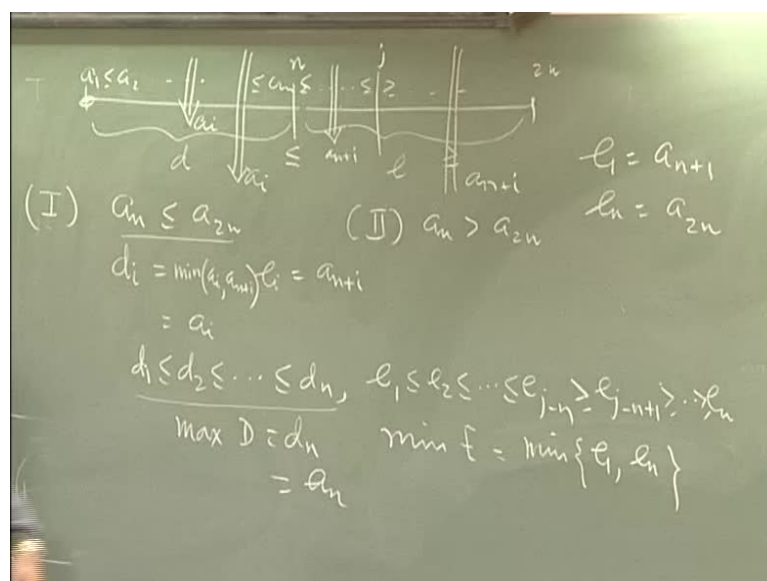 n j 2n
a₁ ≤ a₂ . . . ≤ aₙ ≤ . . . ≤ ≥ . . –
aᵢ aₙ₊ᵢ
d ≤ e ≥
aᵢ aₙ₊ᵢ
e₁ = aₙ₊₁
eₙ = a₂ₙ
(I) aₙ ≤ a₂ₙ (II) aₙ > a₂ₙ
dᵢ = min(aᵢ, aₙ₊ᵢ) eᵢ = aₙ₊ᵢ
= aᵢ
d₁ ≤ d₂ ≤ ⋯ ≤ dₙ, e₁ ≤ e₂ ≤ ⋯ ≤ eⱼ₋ₙ ≥ eⱼ₋ₙ₊₁ ≥ ⋯ ≥ eₙ
max D = dₙ min E = min{e₁, eₙ}
= aₙ